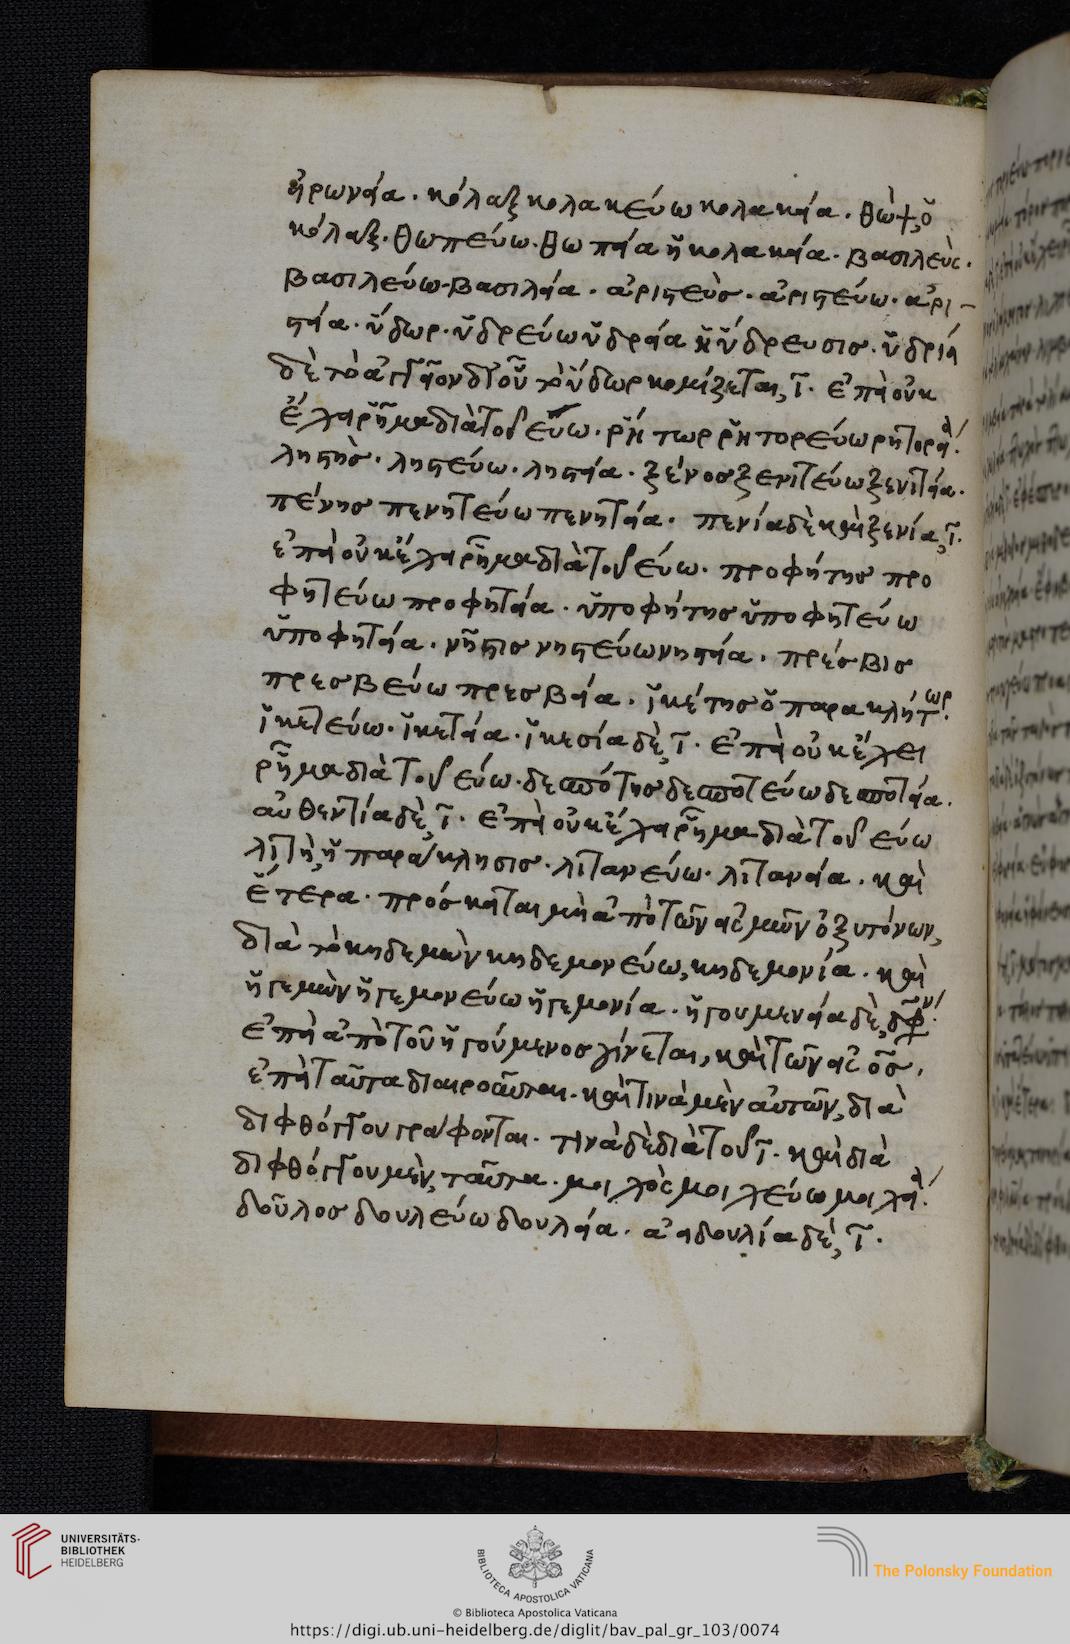 εἰρωνεία. κόλαξ κολακεύω κολακεία. θὼψ, ὁ
κόλαξ. θωπεύω. θωπεία ἡ κολακεία. βασιλεύς.
βασιλεύω. βασιλεία. ἀριστεὺς. ἀριστεύω. ἀρι-
στεία. ὕδωρ. ὑδρεύω ὑδρεία ἡ ὕδρευσις. ὑδρία
δὲ τὸ ἀγγεῖον δι' οὗ τὸ ὕδωρ κομίζεται, ῑ. ἐπεὶ οὐκ
ἔχει ῥῆμα διὰ τοῦ εύω. ῥήτωρ ῥητορεύω ῥητορεία.
λῃστὴς. λῃστεύω. λῃστεία. ξένος ξενιτεύω ξενιτεία.
πένης πενητεύω πενητεία. πενία δὲ καὶ ξενία, ῑ.
ἐπεὶ οὐκ ἔχει ῥῆμα διὰ τοῦ εύω. προφήτης προ
φητεύω προφητεία. ὑποφήτης ὑποφητεύω
ὑποφητεία. νῆστις νηστεύω νηστεία. πρέσβις
πρεσβεύω πρεσβεία. ἱκέτης ὁ παρακλήτωρ.
ἱκετεύω. ἱκετεία. ἱκεσία δὲ, ῑ. ἐπεὶ οὐκ ἔχει
ῥῆμα διὰ τοῦ εύω. δεσπότης δεσποτεύω δεσποτεία.
αὐθεντία δὲ, ῑ. ἐπεὶ οὐκ ἔχει ῥῆμα διὰ τοῦ εύω
λιτὴ, ἡ παράκλησις. λιτανεύω. λιτανεία. καὶ
ἕτερα. πρόσκειται μὴ ἀπὸ τῶν εἰς μων ὀξυτόνων,
διὰ τὸ κηδεμὼν κηδεμονεύω, κηδεμονία. καὶ
ἡγεμὼν ἡγεμονεύω ἡγεμονία. ἡγουμενεία δὲ,
ἐπεὶ ἀπὸ τοῦ ἡγούμενος γίνεται, καὶ τῶν εἰς ος,
ἐπεὶ ταῦτα διαιροῦνται. καὶ τινὰ μὲν αὐτῶν, διὰ
διφθόγγου γράφονται. τινὰ δὲ διὰ τοῦ ῑ. καὶ διὰ
διφθόγγου μὲν, ταῦτα. μοιχὸς μοιχεύω μοιχεία.
δοῦλος δουλεύω δουλεία. ἀειδουλία δὲ, ῑ.
UNIVERSITÄTS-
BIBLIOTHEK
HEIDELBERG
BIBLIOTECA APOSTOLICA VATICANA
The Polonsky Foundation
© Biblioteca Apostolica Vaticana
https://digi.ub.uni-heidelberg.de/diglit/bav_pal_gr_103/0074